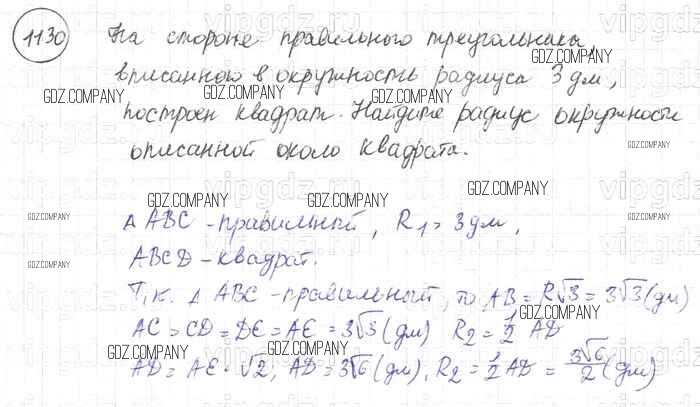 1130 На стороне правильного треугольника,
вписанного в окружность радиуса 3 дм,
построен квадрат. Найдите радиус окружности
описанной около квадрата.
Δ ABC - правильный, R₁ = 3 дм,
ABCD - квадрат.
Т.к. Δ ABC - правильный, то AB = R√3 = 3√3 (дм)
AC = CD = DE = AE = 3√3 (дм) R₂ = 1/2 AD
AD = AE · √2, AD = 3√6 (дм), R₂ = 1/2 AD = 3√6/2 (дм)
GDZ.COMPANY
GDZ.COMPANY
GDZ.COMPANY
GDZ.COMPANY
GDZ.COMPANY
GDZ.COMPANY
GDZ.COMPANY
GDZ.COMPANY
GDZ.COMPANY
GDZ.COMPANY
GDZ.COMPANY
GDZ.COMPANY
vipgdz.ru